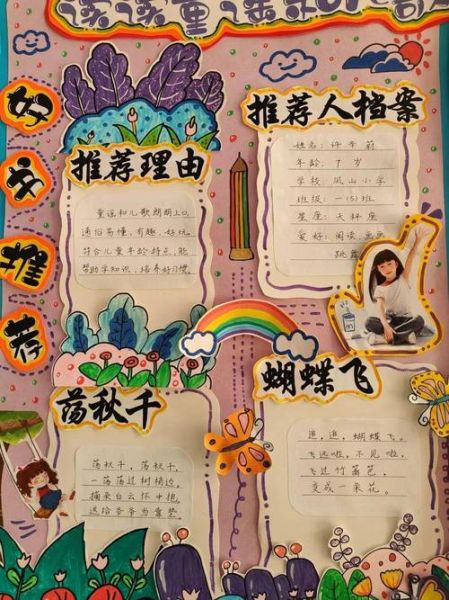 读读童谣
好
书
推
荐
推荐理由
童谣和儿歌朗朗上口,
通俗易懂,有趣、好玩,
符合儿童年龄特点,能
帮助学知识、培养好习惯。
推荐人档案
姓名:许
年龄:7岁
学校:凤山小学
班级:一(5)班
星座:天秤座
爱好:阅读、画画
跳舞
荡秋千
荡秋千,荡秋千,
一荡荡过树梢边,
摘来白云怀中抱,
送给爷爷当靠垫。
蝴蝶飞
追,追,蝴蝶飞。
飞远啦,不见啦,
飞过竹篱笆,
变成一朵花。